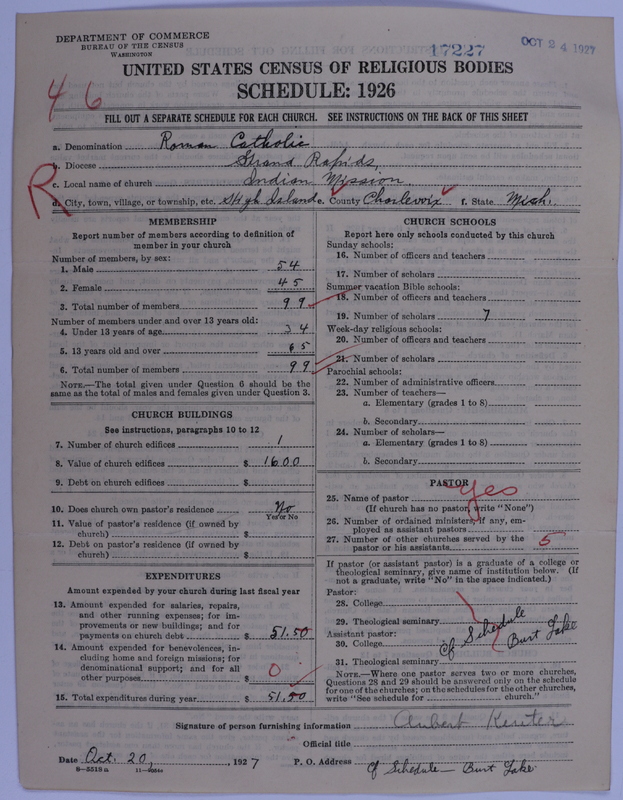 DEPARTMENT OF COMMERCE
BUREAU OF THE CENSUS
WASHINGTON
17227
OCT 24 1927
UNITED STATES CENSUS OF RELIGIOUS BODIES
SCHEDULE: 1926
46
FILL OUT A SEPARATE SCHEDULE FOR EACH CHURCH. SEE INSTRUCTIONS ON THE BACK OF THIS SHEET
a. Denomination Roman Catholic
b. Diocese Grand Rapids,
R
c. Local name of church Indian Mission
d. City, town, village, or township, etc. High Island e. County Charlevoix f. State Mich.
MEMBERSHIP
Report number of members according to definition of
member in your church
Number of members, by sex:
1. Male 54
2. Female 45
3. Total number of members 99
Number of members under and over 13 years old:
4. Under 13 years of age 34
5. 13 years old and over 65
6. Total number of members 99
NOTE.—The total given under Question 6 should be the
same as the total of males and females given under Question 3.
CHURCH BUILDINGS
See instructions, paragraphs 10 to 12
7. Number of church edifices 1
8. Value of church edifices $ 1600
9. Debt on church edifices $
10. Does church own pastor's residence No
Yes or No
11. Value of pastor's residence (if owned by
church) $
12. Debt on pastor's residence (if owned by
church) $
EXPENDITURES
Amount expended by your church during last fiscal year
13. Amount expended for salaries, repairs,
and other running expenses; for im-
provements or new buildings; and for
payments on church debt $ 51.50
14. Amount expended for benevolences, in-
cluding home and foreign missions; for
denominational support; and for all
other purposes $ 0
15. Total expenditures during year $ 51.50
CHURCH SCHOOLS
Report here only schools conducted by this church
Sunday schools:
16. Number of officers and teachers
17. Number of scholars
Summer vacation Bible schools:
18. Number of officers and teachers
19. Number of scholars 7
Week-day religious schools:
20. Number of officers and teachers
21. Number of scholars
Parochial schools:
22. Number of administrative officers
23. Number of teachers—
a. Elementary (grades 1 to 8)
b. Secondary
24. Number of scholars—
a. Elementary (grades 1 to 8)
b. Secondary
PASTOR
25. Name of pastor yes
(If church has no pastor, write "None")
26. Number of ordained ministers, if any, em-
ployed as assistant pastors
27. Number of other churches served by the
pastor or his assistants 5
If pastor (or assistant pastor) is a graduate of a college or
theological seminary, give name of institution below. (If
not a graduate, write "No" in the space indicated.)
Pastor:
28. College
29. Theological seminary
Assistant pastor:
30. College
Cf Schedule
Burt Lake
31. Theological seminary
NOTE.—Where one pastor serves two or more churches,
Questions 28 and 29 should be answered only on the schedule
for one of the churches; on the schedules for the other churches,
write "See schedule for church."
Signature of person furnishing information
Official title
Date Oct. 20, 1927 P. O. Address Cf Schedule— Burt Lake
8—5519a